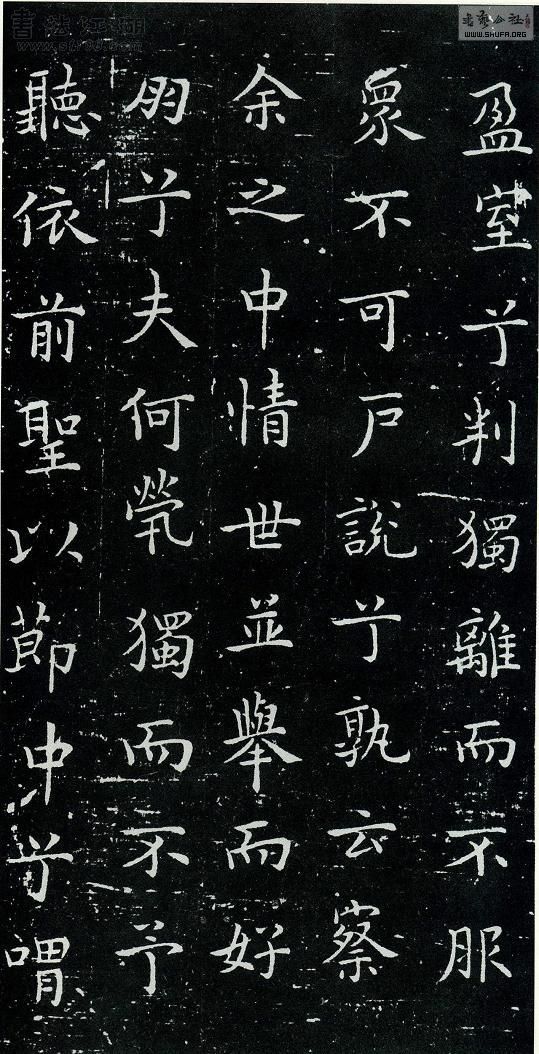 盈室兮判獨離而不服
衆不可戶說兮孰云察
余之中情世並舉而好
朋兮夫何煢獨而不予
聽依前聖以節中兮喟
書法江湖
www.sf108.com
書藝公社
WWW.SHUFA.ORG